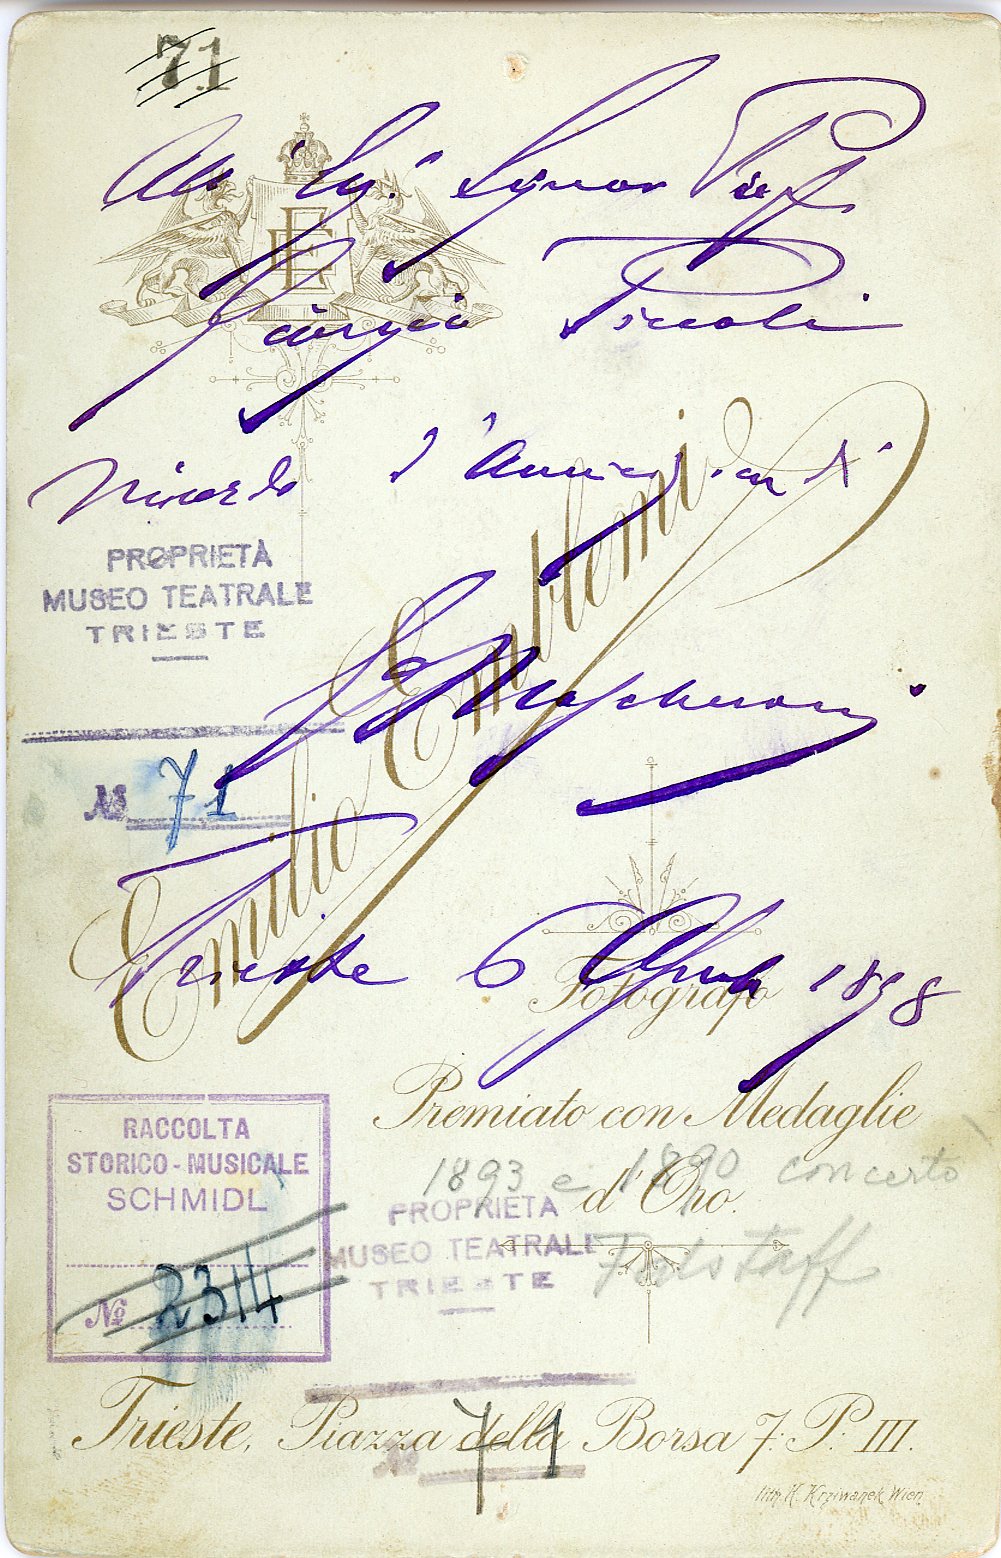 71
EE
All' Eg. Signor Prof
Giorgio Piccoli
Ricordo d'
Emilio Emblemi
PROPRIETÀ
MUSEO TEATRALE
TRIESTE
E Mascheroni
№ 71
Trieste 6 Aprile 1898
Fotografo
Premiato con Medaglie
d'Oro.
1893 e 1890 concerto
Falstaff
RACCOLTA
STORICO-MUSICALE
SCHMIDL
№ 2314
PROPRIETÀ
MUSEO TEATRALE
TRIESTE
Trieste, Piazza della Borsa 7. P. III.
№ 71
lith. K. Krziwanek, Wien